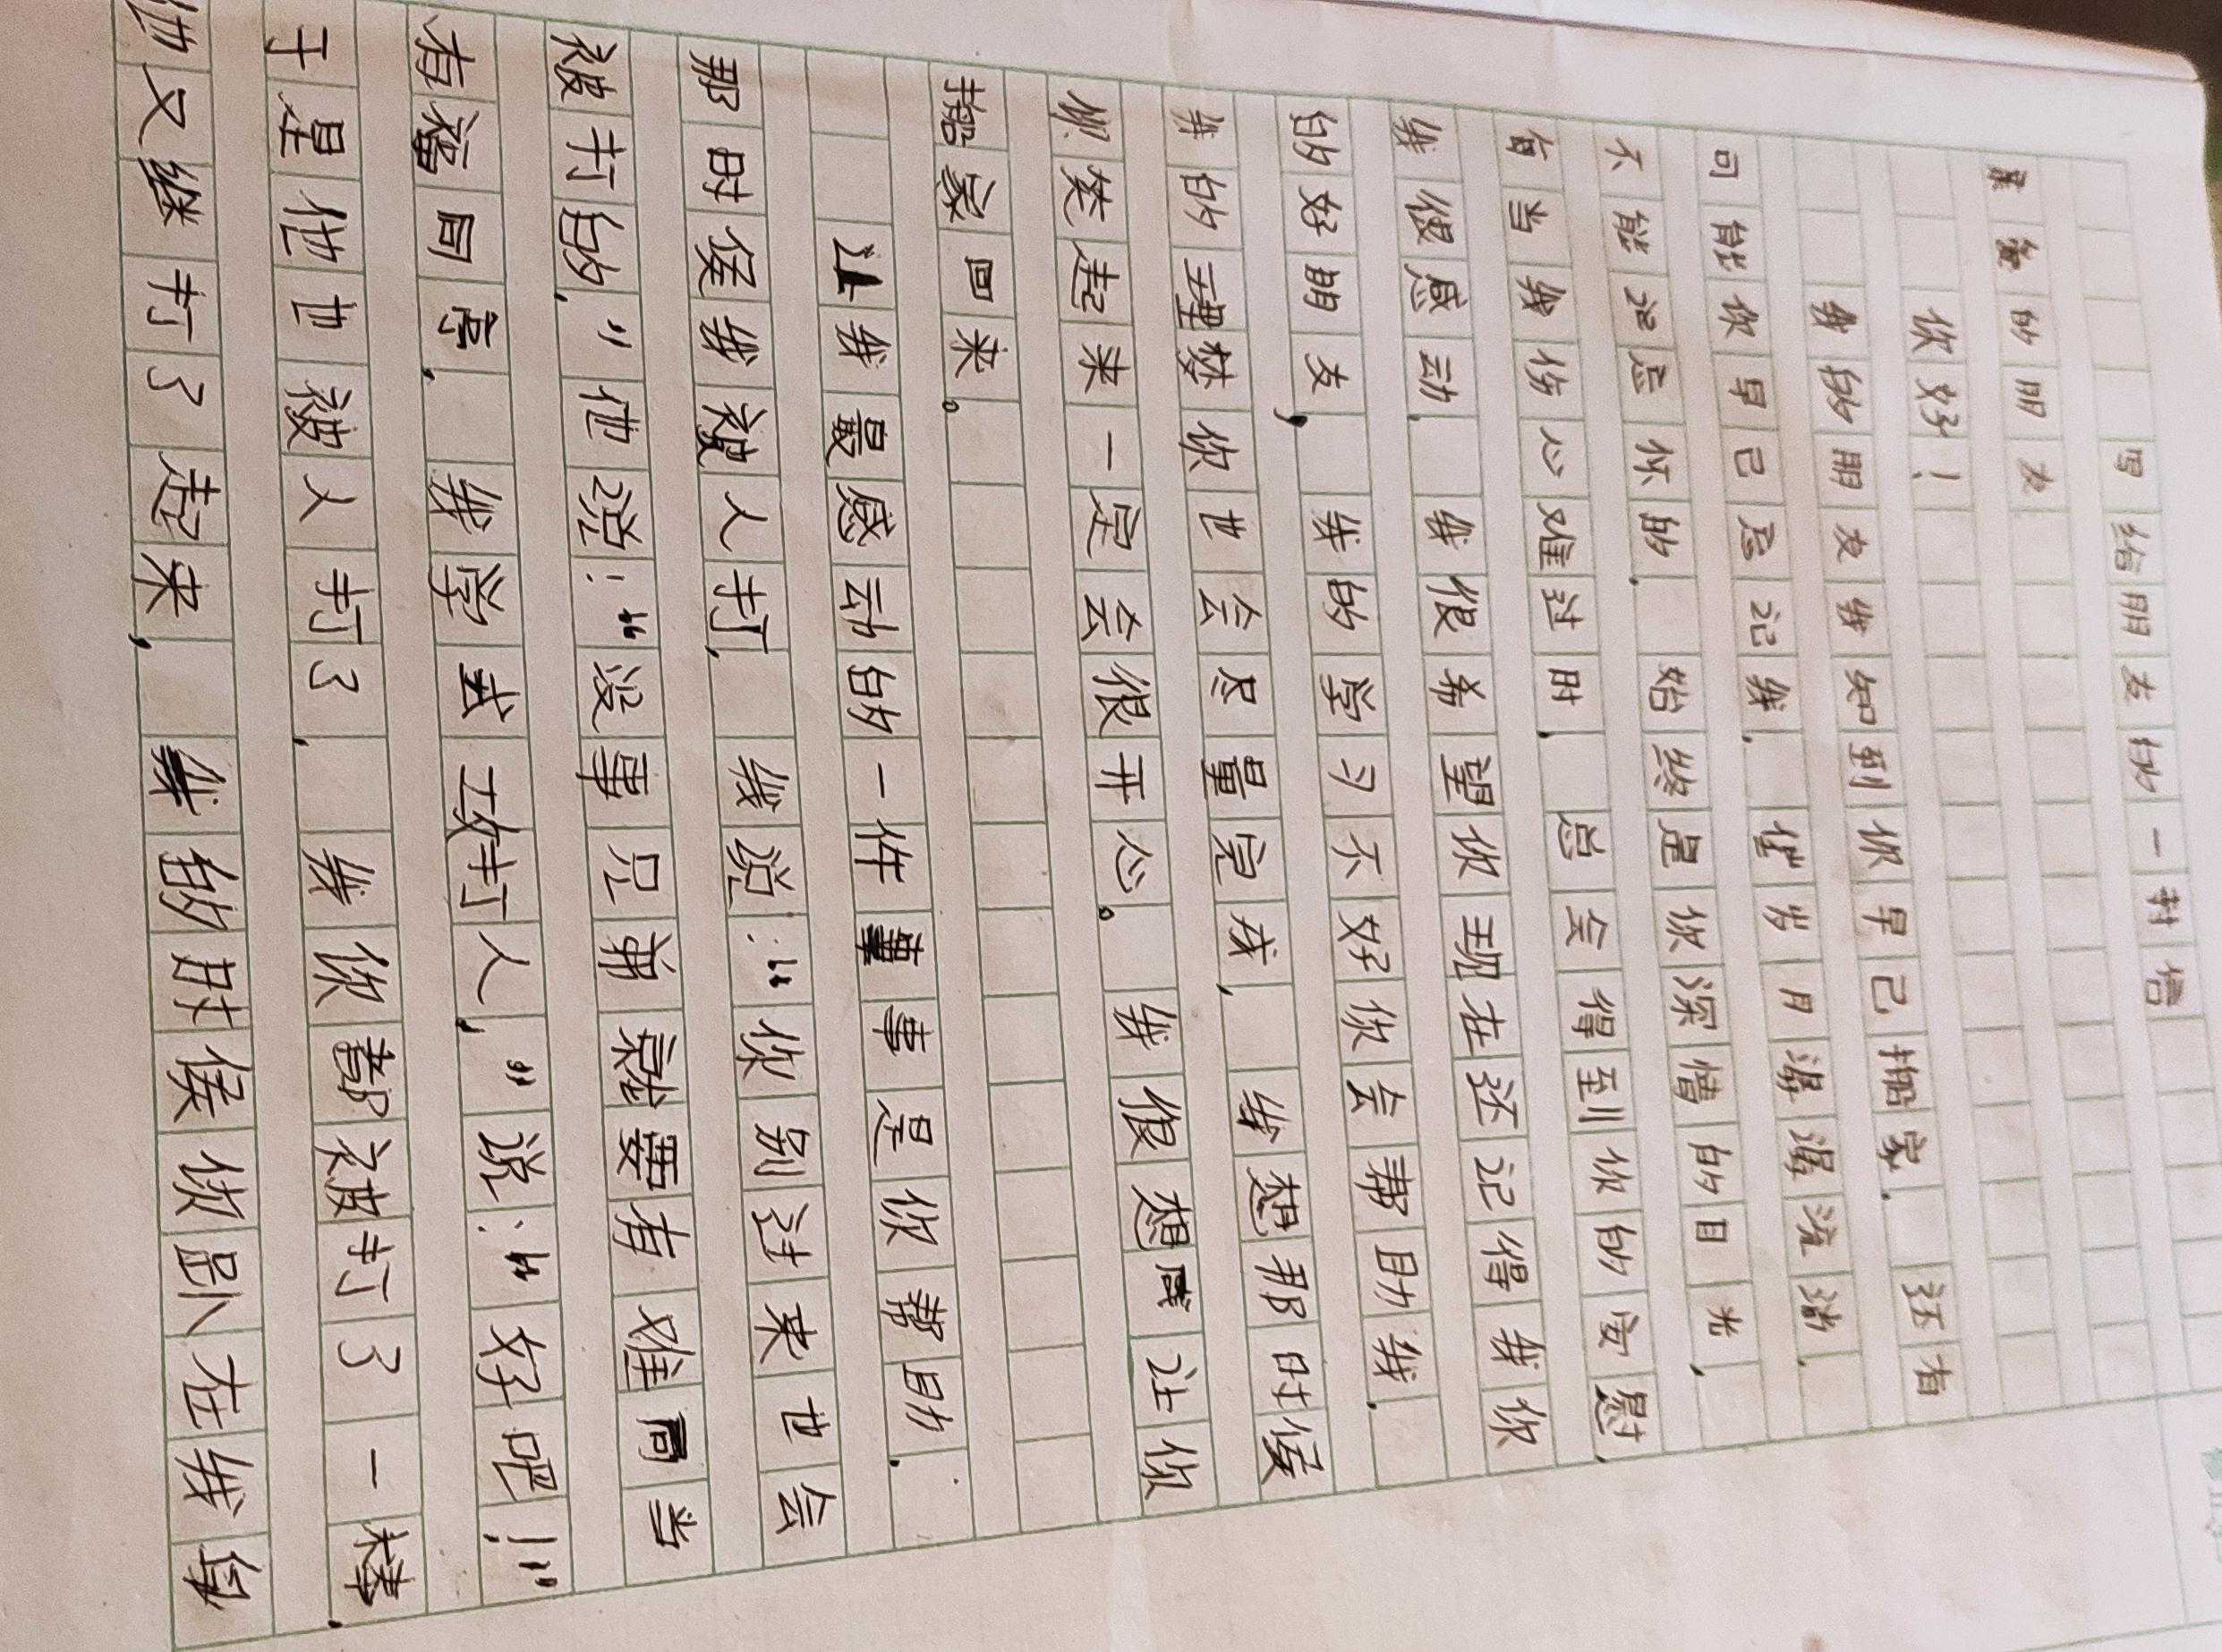 写给朋友的一封信
亲爱的朋友
你好！
我的朋友我知到你早已搬家，还有
可能你早已忘记我，但岁月潺潺流淌，
不能忘怀的，始终是你深情的目光，
每当我伤心难过时，总会得到你的安慰，
我很感动，我很希望你现在还记得我你
的好朋友，我的学习不好你会帮助我，
我的理梦你也会尽量完成，我想那时侯
你笑起来一定会很开心。我很想感让你
搬家回来。
让我最感动的一件事是你帮助，
那时侯我被人打，我说：“你别进来也会
被打的，”他说：“没事兄弟就要有难同当
有福同享，我学武功打人，”说：“好吧！”
于是他也被人打了，我你都被打了一楼，
他又继打了起来，我的时侯你卧在我身